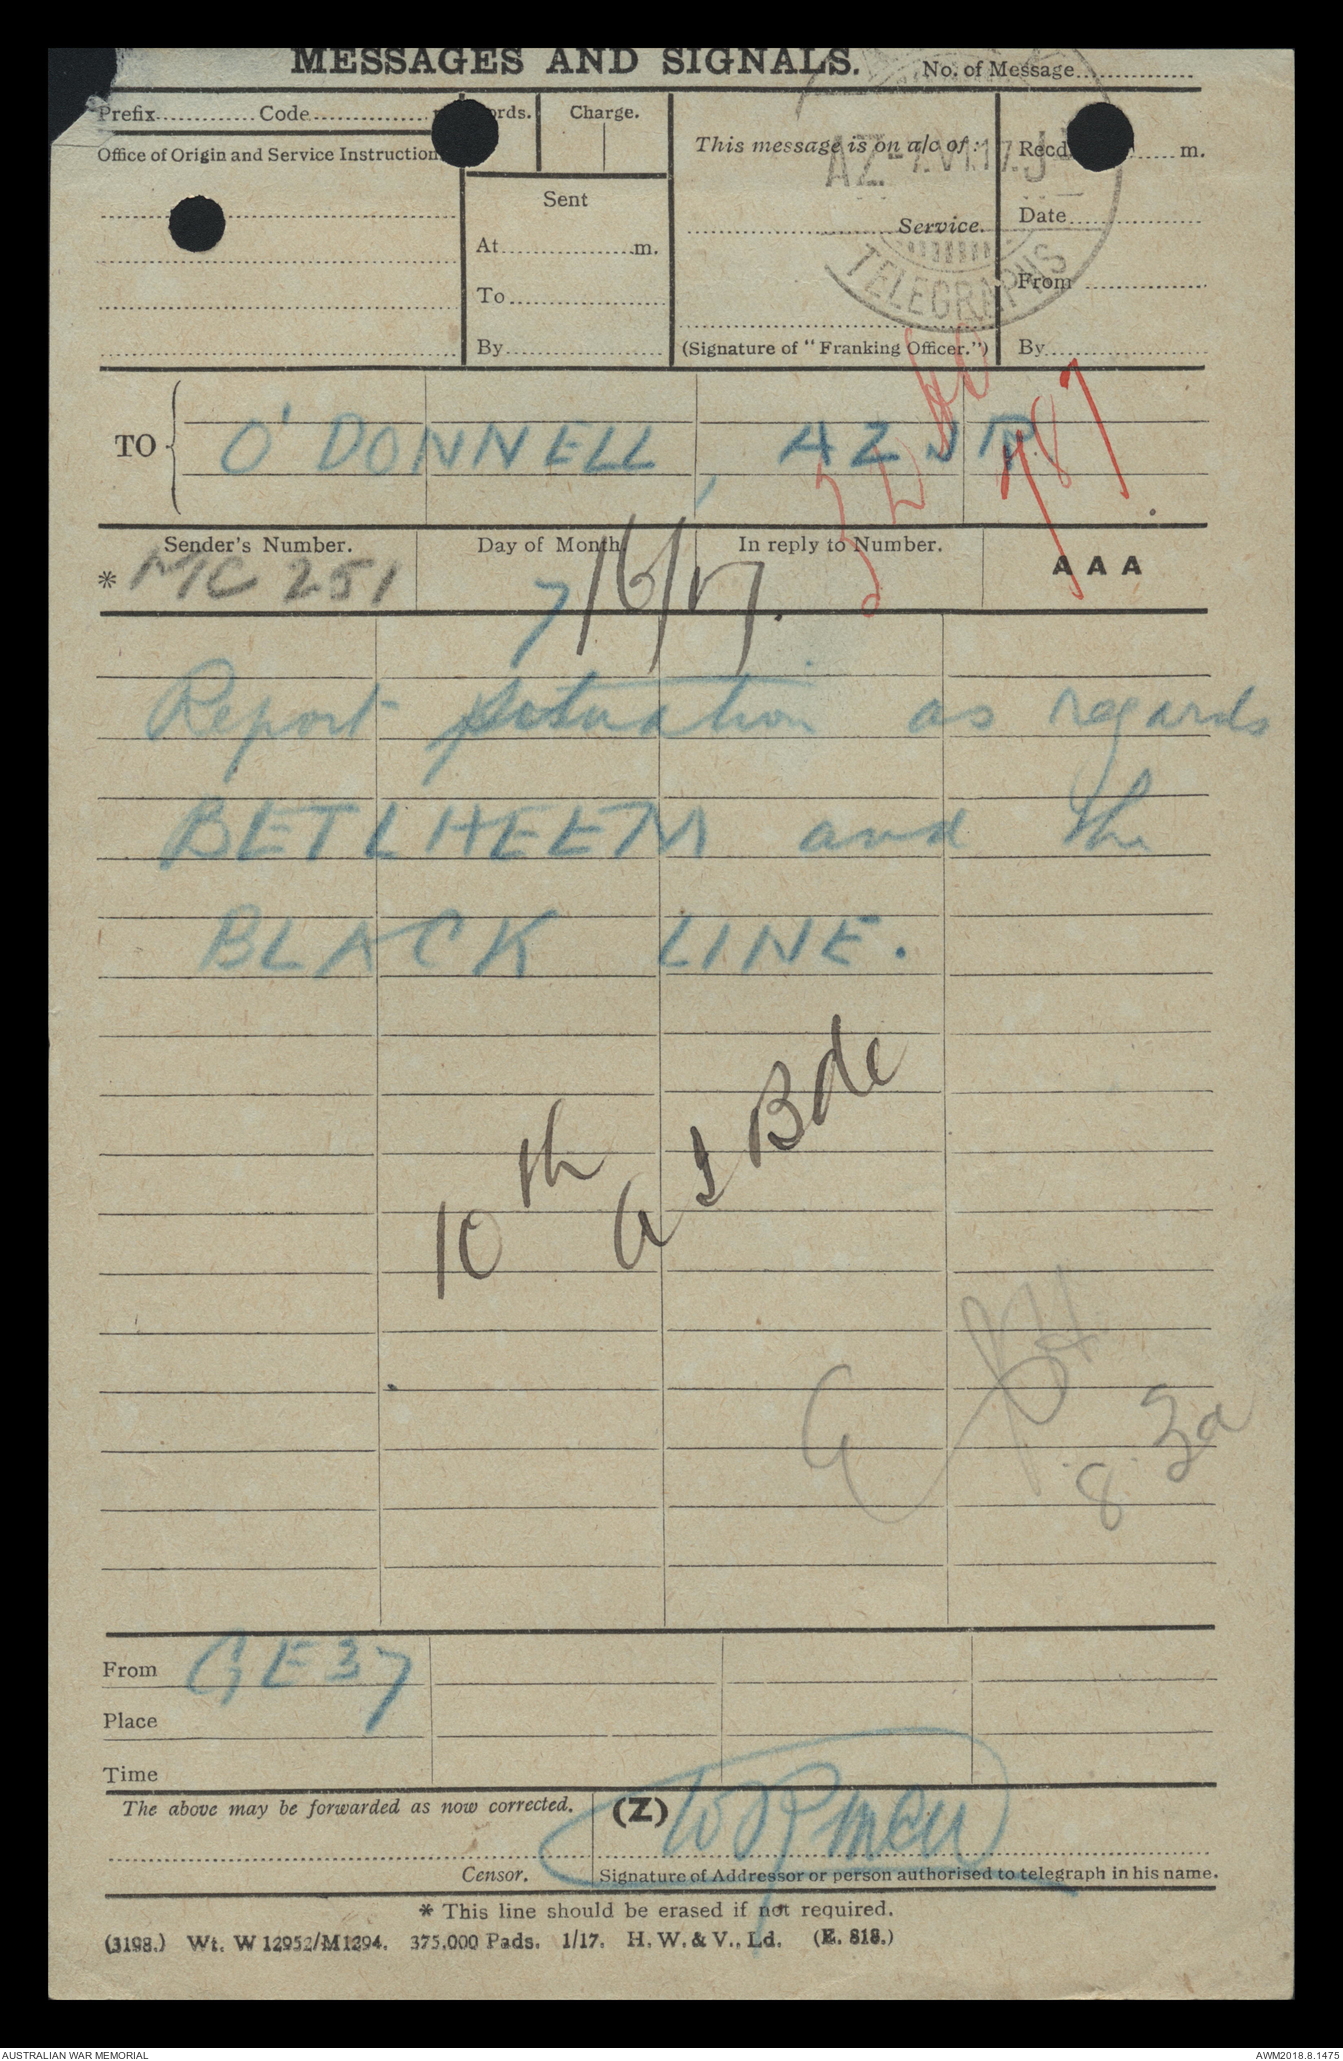 MESSAGES AND SIGNALS.
No. of Message
Prefix Code ords. Charge.
Office of Origin and Service Instruction
This message is on a/c of :
Recd m.
AZ -7.VI.17. J
Sent
Service.
Date
At m.
TELEGRAPHS
From
To
By
(Signature of "Franking Officer.")
By
TO O'DONNELL AZJR
787
Sender's Number. Day of Month. In reply to Number. AAA
* MC 251 7/6/17.
Report situation as regards
BETLHEEM and the
BLACK LINE.
10th A I Bde
8
From GE37
Place
Time
The above may be forwarded as now corrected. (Z)
Censor. Signature of Addressor or person authorised to telegraph in his name.
* This line should be erased if not required.
(3198.) Wt. W 12952/M1294. 375,000 Pads. 1/17. H. W. & V., Ld. (E. 818.)
AUSTRALIAN WAR MEMORIAL AWM2018.8.1475